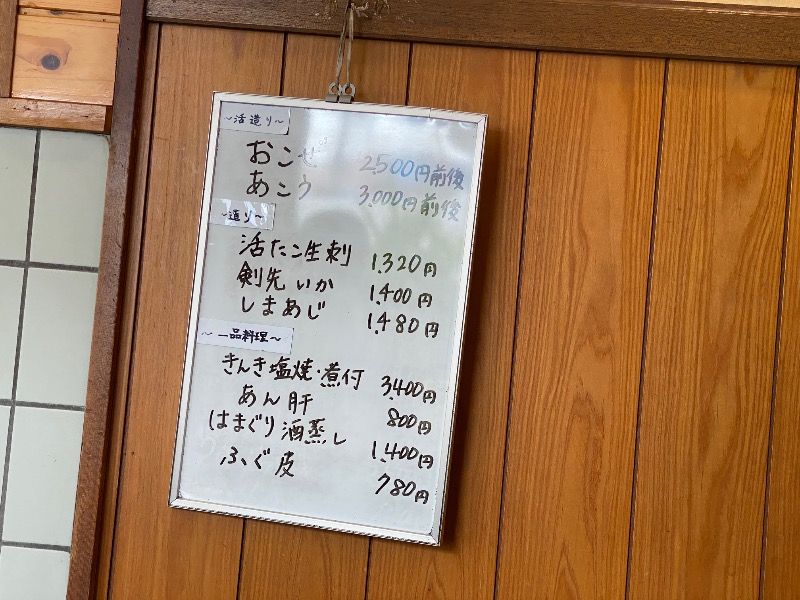 ~活造り~
おこぜ 2,500円前後
あこう 3,000円前後
~造り~
活たこ生刺 1,320円
剣先いか 1,400円
しまあじ 1,480円
~一品料理~
きんき塩焼・煮付 3,400円
あん肝 800円
はまぐり酒蒸し 1,400円
ふぐ皮 780円